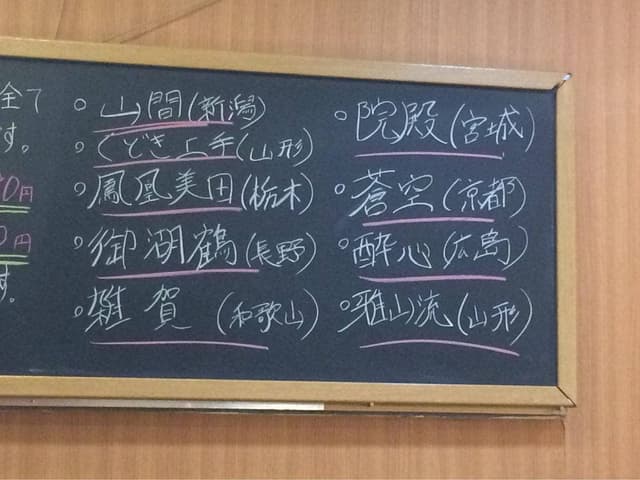 全て
す。
0円
0円
す。
○山間(新潟)
○くどき上手(山形)
○鳳凰美田(栃木)
○御湖鶴(長野)
○雑賀(和歌山)
○院殿(宮城)
○蒼空(京都)
○酔心(広島)
○雅山流(山形)